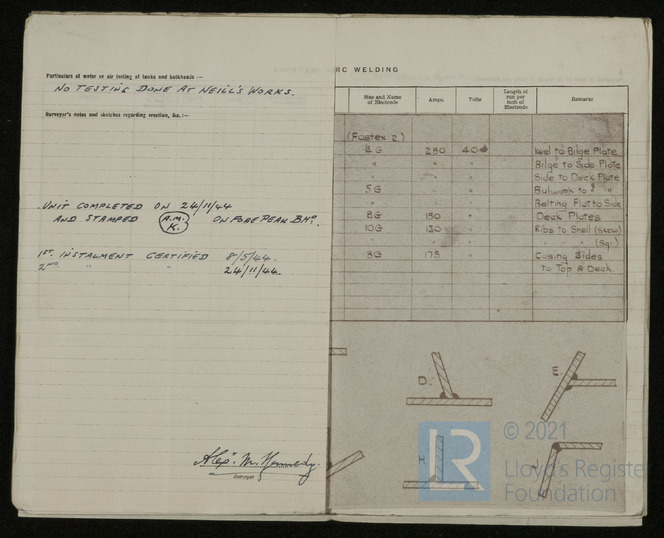 Particulars of water or air testing of tanks and bulkheads :—
NO TESTING DONE AT NEILL'S WORKS.
Surveyor's notes and sketches regarding erection, &c. :—
UNIT COMPLETED ON 24/11/44
AND STAMPED A.M. K. ON FORE PEAK BHD.
1ST. INSTALMENT CERTIFIED 8/5/44.
2ND. " " 24/11/44.
Alex. M. Kennedy.
Surveyor
RC WELDING
Size and Name of Electrode Amps. Volts Length of run per inch of Electrode Remarks
(Fastex 2.)
4G 280 40 Keel to Bilge Plate
" " " Bilge to Side Plate
" " " Side to Deck Plate
5G " " Bulwark to " "
" " " Belting Flat to Side
8G 150 " Deck Plates
10G 130 " Ribs to Shell (Skew)
" " " " " (Sq.)
8G 175 " Casing Sides
to Top & Deck
D. E.
H
© 2021
LR
Lloyd's Register
Foundation